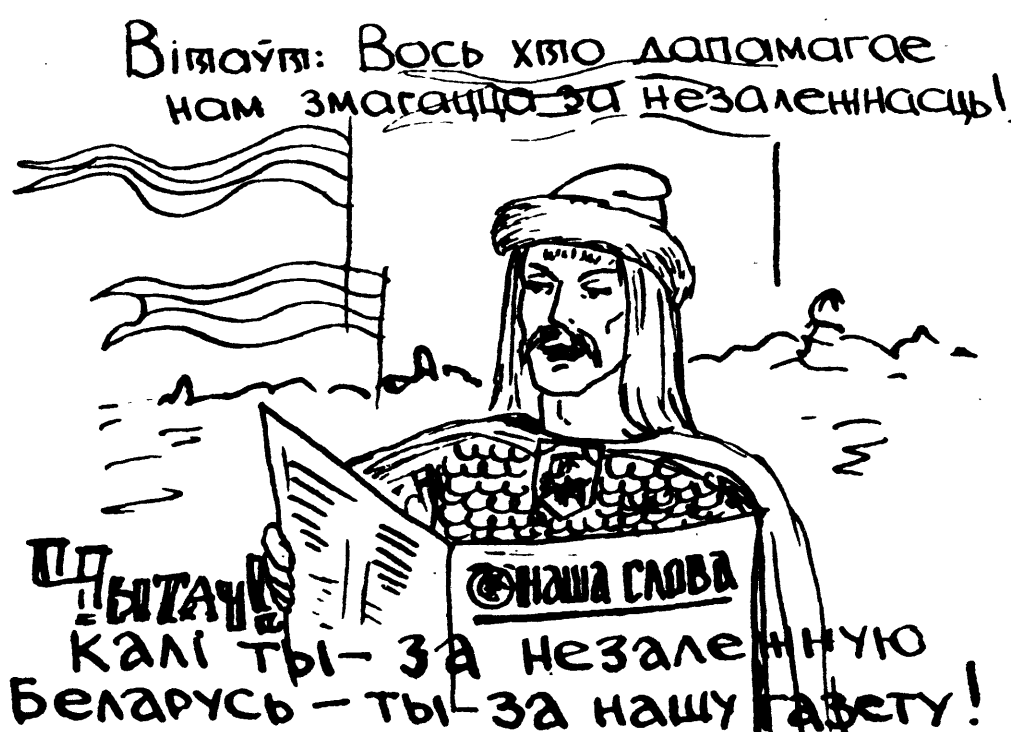 Вітаўт: Вось хто дапамагае
нам змагацца за незалежнасць!
наша слова
Чытач!
Калі ты - за незалежную
Беларусь - ты - за нашу газету!